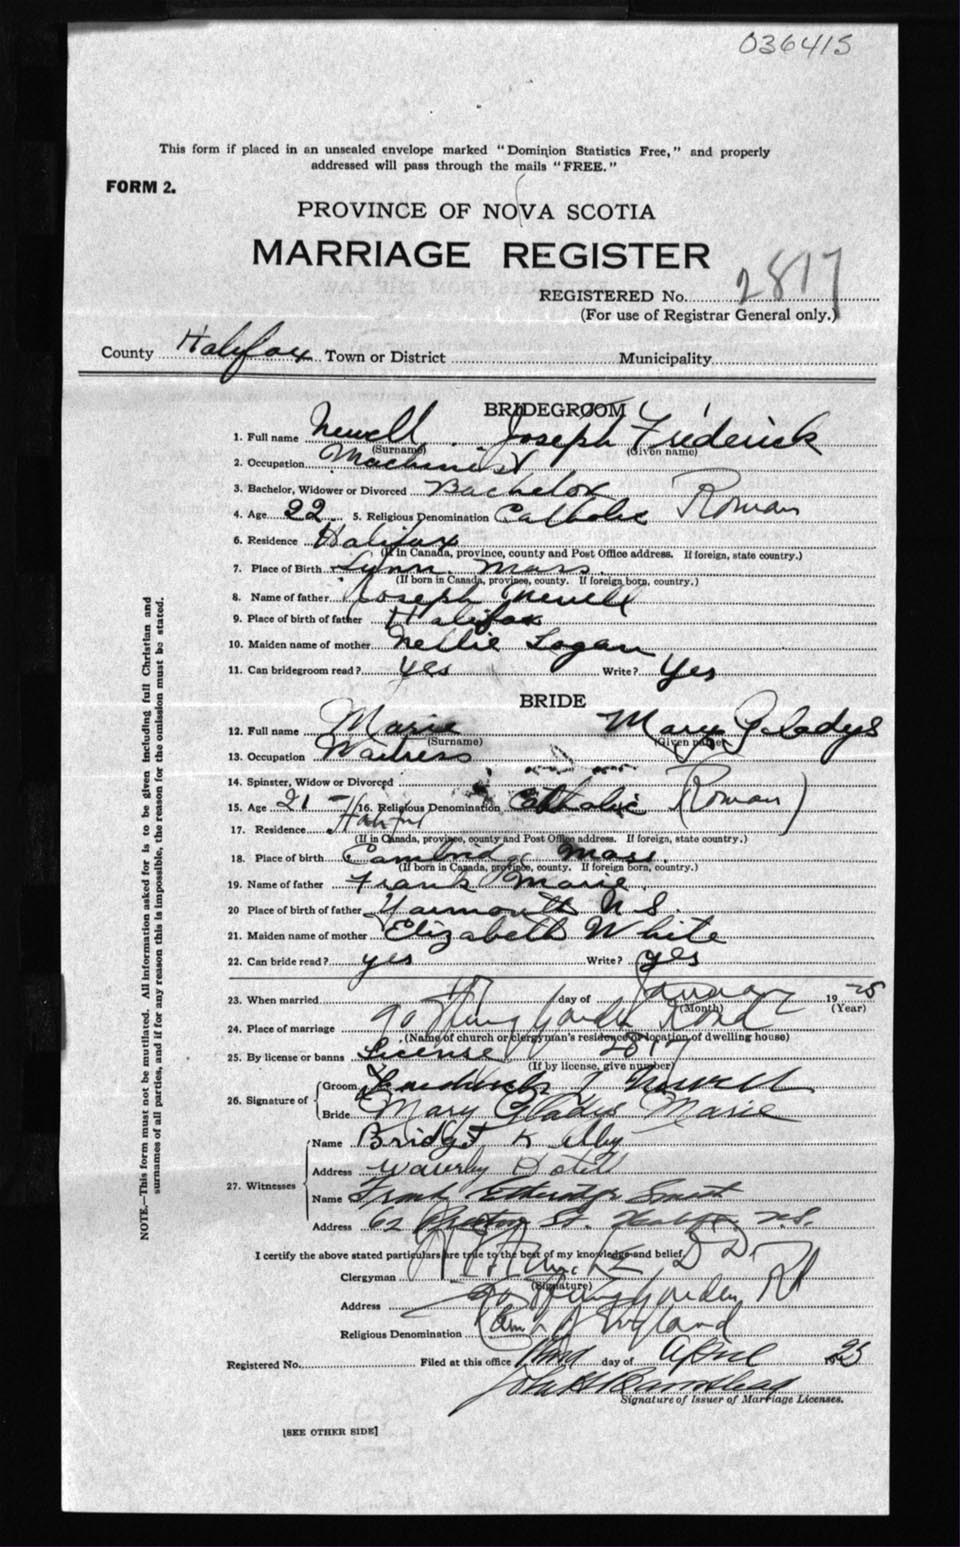 036415
This form if placed in an unsealed envelope marked "Dominion Statistics Free," and properly
addressed will pass through the mails "FREE."
FORM 2.
PROVINCE OF NOVA SCOTIA
MARRIAGE REGISTER
REGISTERED No. 2817
(For use of Registrar General only.)
County Halifax Town or District Municipality
BRIDEGROOM
1. Full name Newell Joseph Frederick
(Surname) (Given name)
2. Occupation Machinist
3. Bachelor, Widower or Divorced Bachelor
4. Age 22 5. Religious Denomination Catholic Roman
6. Residence Halifax
(If in Canada, province, county and Post Office address. If foreign, state country.)
7. Place of Birth Lynn Mass.
(If born in Canada, province, county. If foreign born, country.)
8. Name of father Joseph Newell
9. Place of birth of father Halifax
10. Maiden name of mother Nellie Logan
11. Can bridegroom read? yes Write? Yes
BRIDE
12. Full name Marie Mary Gladys
(Surname) (Given name)
13. Occupation Waitress
14. Spinster, Widow or Divorced
15. Age 21 16. Religious Denomination Catholic (Roman)
17. Residence Halifax
(If in Canada, province, county and Post Office address. If foreign, state country.)
18. Place of birth Cambridge Mass.
(If born in Canada, province, county. If foreign born, country.)
19. Name of father Frank Marie
20 Place of birth of father Yarmouth N.S.
21. Maiden name of mother Elizabeth White
22. Can bride read? yes Write? yes
23. When married day of January 19 25
(Month) (Year)
24. Place of marriage Road
(Name of church or clergyman's residence or location of dwelling house)
25. By license or banns License 2817
(If by license, give number)
26. Signature of Groom J Newell
Bride Mary Gladys Marie
27. Witnesses Name Bridget
Address Waverley Hotel
Name Frank Smith
Address 62 St. Halifax N.S.
I certify the above stated particulars are true to the best of my knowledge and belief.
Clergyman
(Signature)
Address Garden Rd
Religious Denomination England
Registered No. Filed at this office day of April 19 25
John
Signature of Issuer of Marriage Licenses.
[SEE OTHER SIDE]
NOTE.—This form must not be mutilated. All information asked for is to be given including full Christian and
surnames of all parties, and if for any reason this is impossible, the reason for the omission must be stated.